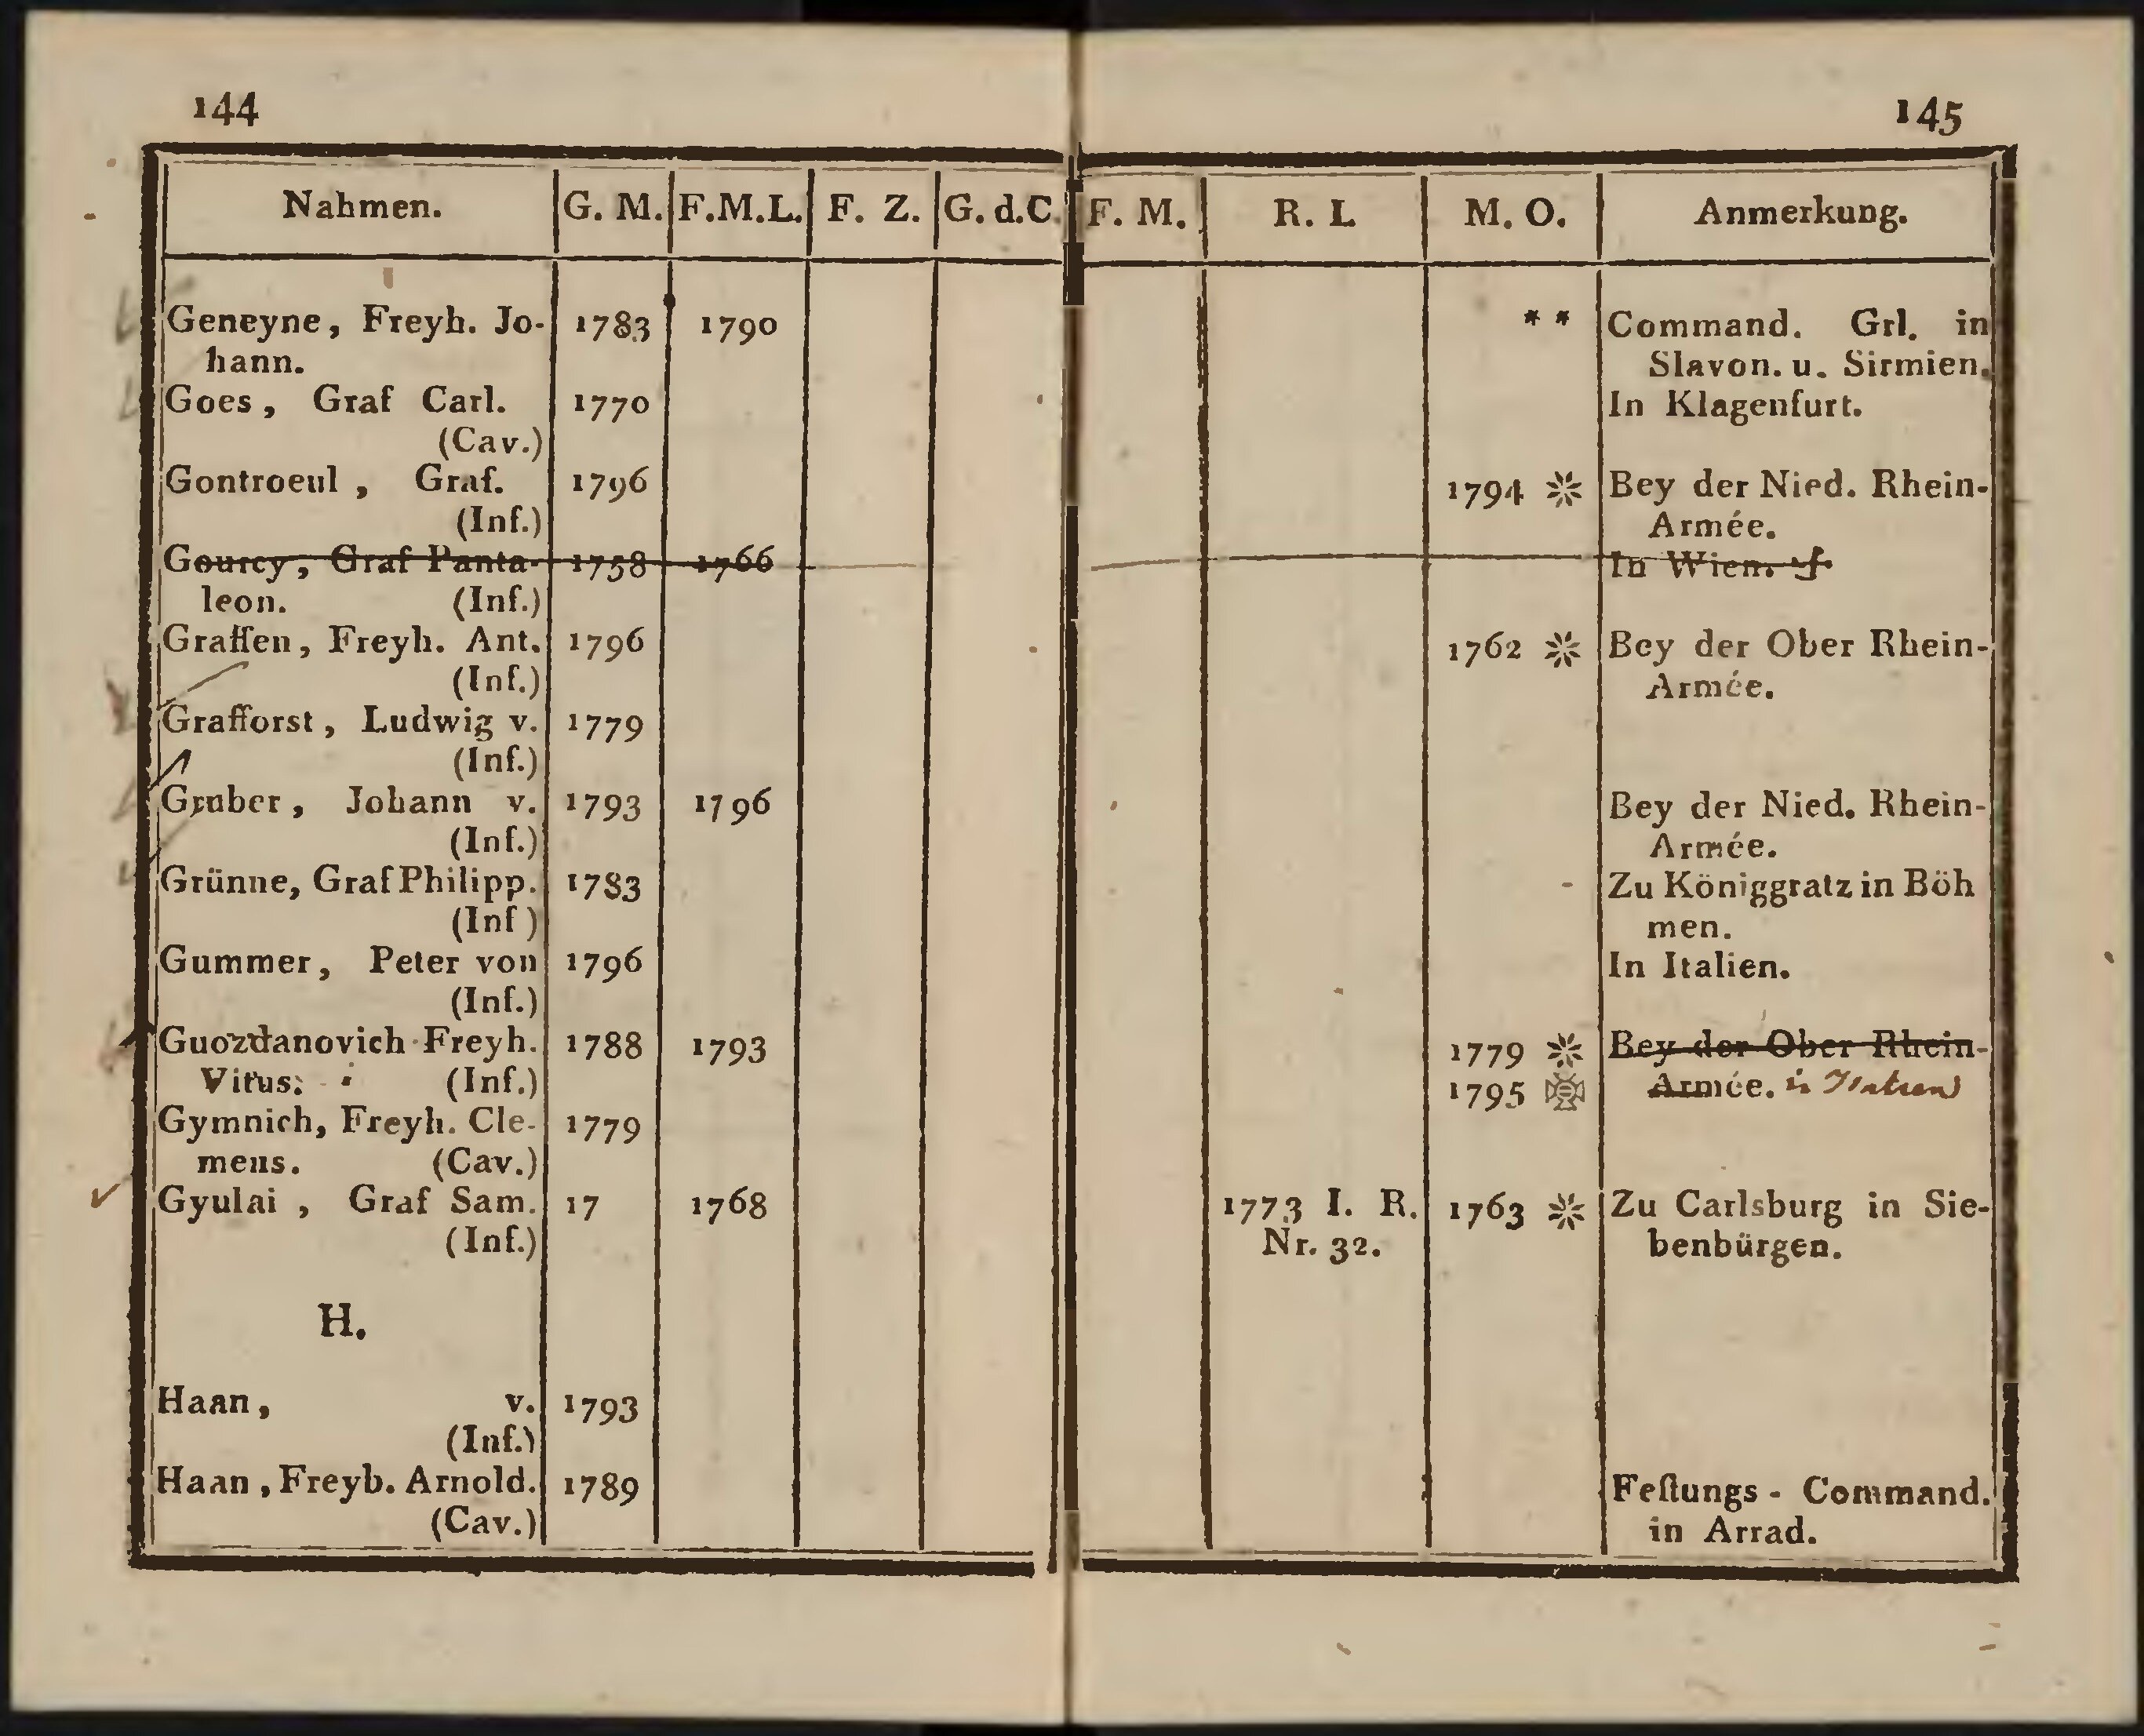 144
145
Nahmen. G. M. F.M.L. F. Z. G. d.C. F. M. R. I. M. O. Anmerkung.
Geneyne, Freyh. Jo- 1783 1790 * * Command. Grl. in
hann. Slavon. u. Sirmien.
Goes, Graf Carl. 1770 In Klagenfurt.
(Cav.)
Gontroeul, Graf. 1796 1794 ※ Bey der Nied. Rhein-
(Inf.) Armée.
Gourcy, Graf Panta- 1758 1766 In Wien.
leon. (Inf.)
Graffen, Freyh. Ant. 1796 1762 ※ Bey der Ober Rhein-
(Inf.) Armée.
Grafforst, Ludwig v. 1779
(Inf.)
Gruber, Johann v. 1793 1796 Bey der Nied. Rhein-
(Inf.) Armée.
Grünne, Graf Philipp. 1783 Zu Königgratz in Böh
(Inf) men.
Gummer, Peter von 1796 In Italien.
(Inf.)
Guozdanovich Freyh. 1788 1793 1779 ※ Bey der Ober Rhein-
Vitus. (Inf.) 1795 Armée. in Italien
Gymnich, Freyh. Cle- 1779
mens. (Cav.)
Gyulai, Graf Sam. 17 1768 1773 I. R. 1763 ※ Zu Carlsburg in Sie-
(Inf.) Nr. 32. benbürgen.
H.
Haan, v. 1793
(Inf.)
Haan, Freyh. Arnold. 1789 Feſtungs - Command.
(Cav.) in Arrad.